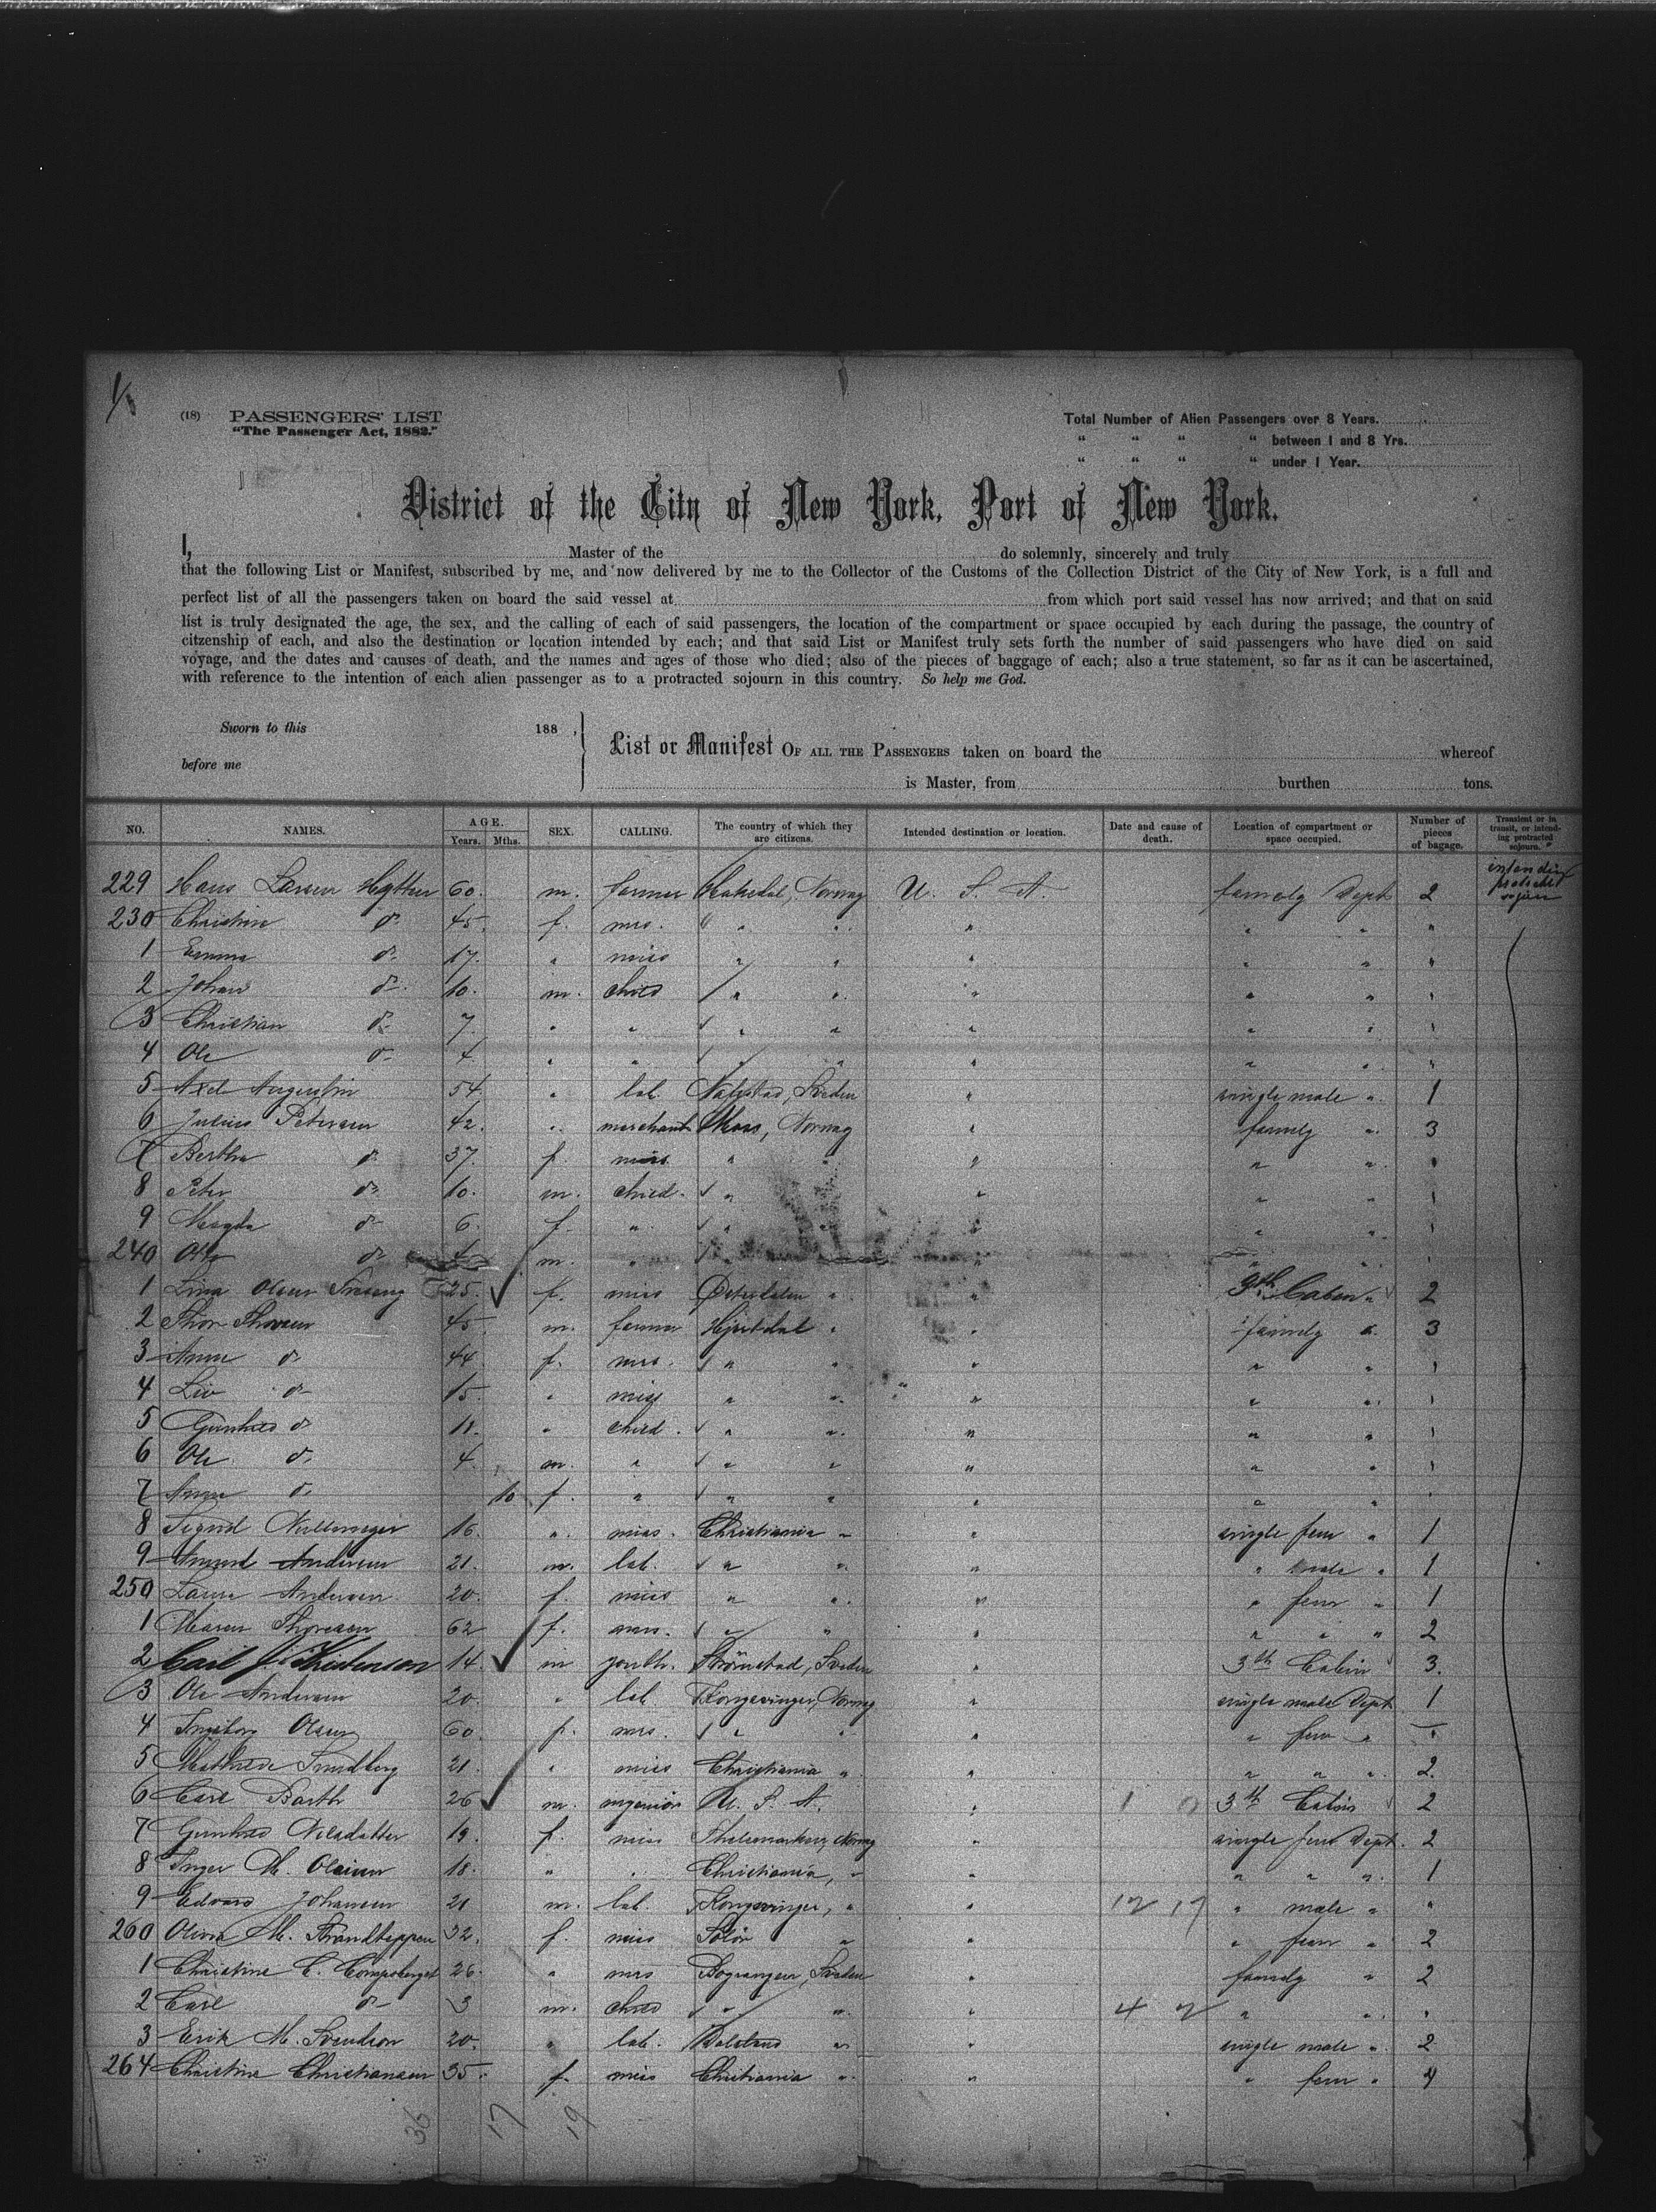 (18) PASSENGERS' LIST
"The Passenger Act, 1882."
Total Number of Alien Passengers over 8 Years.
" " " " between 1 and 8 Yrs.
" " " " under 1 Year.
District of the City of New York, Port of New York.
I, Master of the do solemnly, sincerely and truly
that the following List or Manifest, subscribed by me, and now delivered by me to the Collector of the Customs of the Collection District of the City of New York, is a full and
perfect list of all the passengers taken on board the said vessel at from which port said vessel has now arrived; and that on said
list is truly designated the age, the sex, and the calling of each of said passengers, the location of the compartment or space occupied by each during the passage, the country of
citzenship of each, and also the destination or location intended by each; and that said List or Manifest truly sets forth the number of said passengers who have died on said
voyage, and the dates and causes of death, and the names and ages of those who died; also of the pieces of baggage of each; also a true statement, so far as it can be ascertained,
with reference to the intention of each alien passenger as to a protracted sojourn in this country. So help me God.
Sworn to this 188 ,
before me
List or Manifest OF ALL THE PASSENGERS taken on board the whereof
is Master, from burthen tons.
NO. NAMES. AGE. Years. Mths. SEX. CALLING. The country of which they are citizens. Intended destination or location. Date and cause of death. Location of compartment or space occupied. Number of pieces of bagage. Transient or in transit, or intending protracted sojourn.
229 Hans Larsen 60. m. farmer Hakedal, Norway U. S. A. family Dept 2
230 Christine do 45. f. mrs. " " " " " "
1 Emma do 17. " miss " " " " " "
2 Johan do 10. m. child " " " " " "
3 Christian do 7. " " " " " " " "
4 Ole do " " " " " " " "
5 Axel Augustin 54. " lab. Sweden " single male " 1
6 Julius Petersen 42. " merchant Moss, Norway " family " 3
7 Bertha do 37. f. " " " " " "
8 Peter do 10. m. child. " " " " " "
9 Magda do 6. f. " " " " " " "
240 do m. " " " " " " "
1 Lina Olsen 25. f. miss Østerdalen " " 3th Cabin " 2
2 Thor Thorsen 45. m. farmer Hjertdal " " family " 3
3 Anne do 44. f. mrs. " " " " " "
4 Liv do 15. " miss " " " " " "
5 Gunhild do 11. " child. " " " " " "
6 Ole do 4. m. " " " " " " "
7 Anne do 10 f. " " " " " " "
8 Sigrid 16. " miss. Christiania " " single fem " 1
9 Amund Andersen 21. m. lab. " " " " male " 1
250 Laura Andersen 20. f. miss " " " " fem " 1
1 Maren Thoresen 62 f. mrs. " " " " " " 2
2 Carl J. 14. m youth. Strömstad, Sweden " 3th Cabin 3.
3 Ole Andersen 20. " lab Kongsvinger, Norway " single male Dept 1
4 Ingeborg Olsen 60. f. mrs. " " " " fem " "
5 Mathilde Sundberg 21. " miss Christiania " " " " " 2.
6 Carl Barth 26 m. ingeniör U. S. A. " 3th Cabin 2
7 Gunhild Nilsdatter 19. f. miss Thelemarken, Norway " single fem Dept. 2
8 Inger M. Olsen 18. " " Christiania, " " " " " 1
9 Edvard Johansen 21 m. lab. Kongsvinger, " " 12 17 " male " "
260 Olivia M. 32. f. miss Solör " " " fem " 2
1 Christine C. 26. " mrs Sweden " family " 2
2 Carl do 3 m. child " " " 4 " " "
3 Erik M. Svendson 20. " lab. " " single male " 2
264 Christine Christiansen 35. f. miss Christiania " " " fem " 4
36 17 19